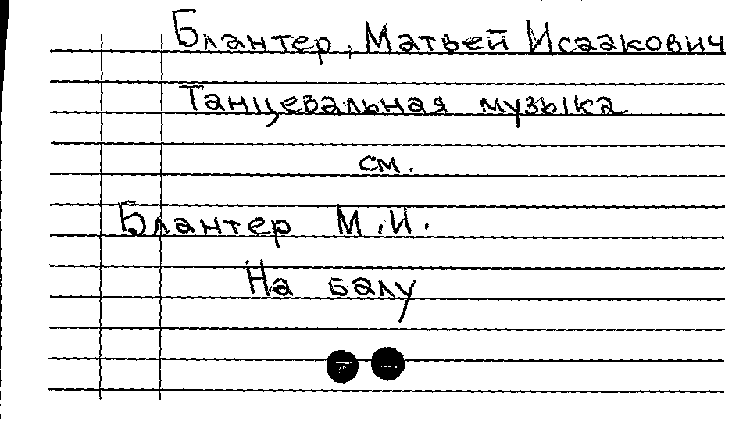 Блантер, Матвей Исаакович
Танцевальная музыка
см.
Блантер М.И.
На балу